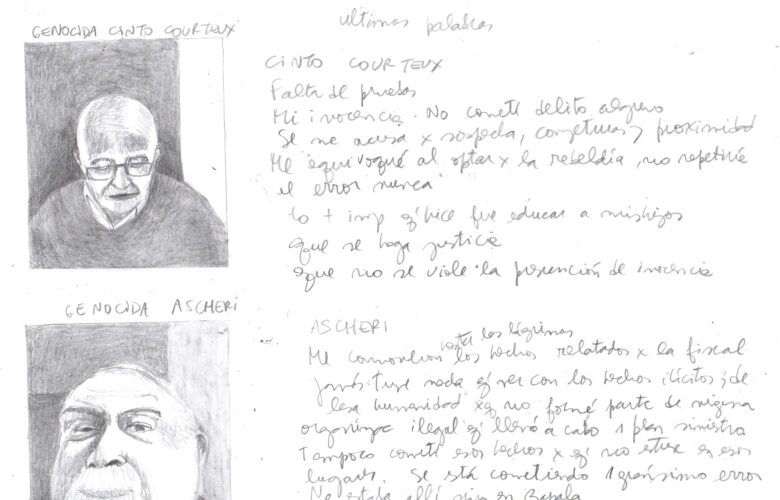 GENOCIDA CINTO COURTEUX
últimas palabras
CINTO COURTEUX
Falta de pruebas
Mi inocencia. No cometí delito alguno
Se me acusa x sospecha, conjeturas y proximidad
Me equivoqué al optar x la rebeldía, no repetiré
el error nunca
lo + imp q' hice fue educar a mis hijos
que se haga justicia
que no se viole la presunción de inocencia
GENOCIDA ASCHERI
ASCHERI
hasta las lágrimas
Me conmovieron los hechos relatados x la fiscal
jamás tuve nada q' ver con los hechos ilícitos, de
lesa humanidad xq no formé parte de ninguna
ilegal q' llevó a cabo 1 plan siniestro
Tampoco cometí esos hechos x q' no estuve en esos
lugares. Se está cometiendo 1 gravísimo error
No estaba allí sino en Zapala